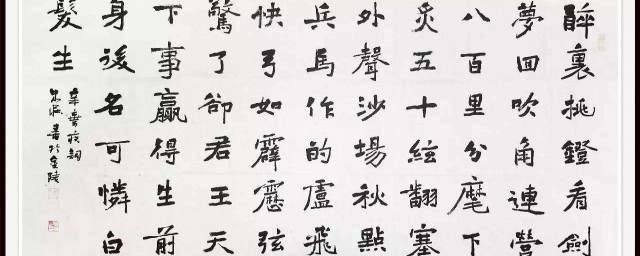 醉裏挑鐙看劍
夢回吹角連營
八百里分麾下
炙五十絃翻塞
外聲沙場秋點
兵馬作的盧飛
快弓如霹靂弦
驚了卻君王天
下事贏得生前
身後名可憐白
髮生
辛棄疾詞
書於金陵